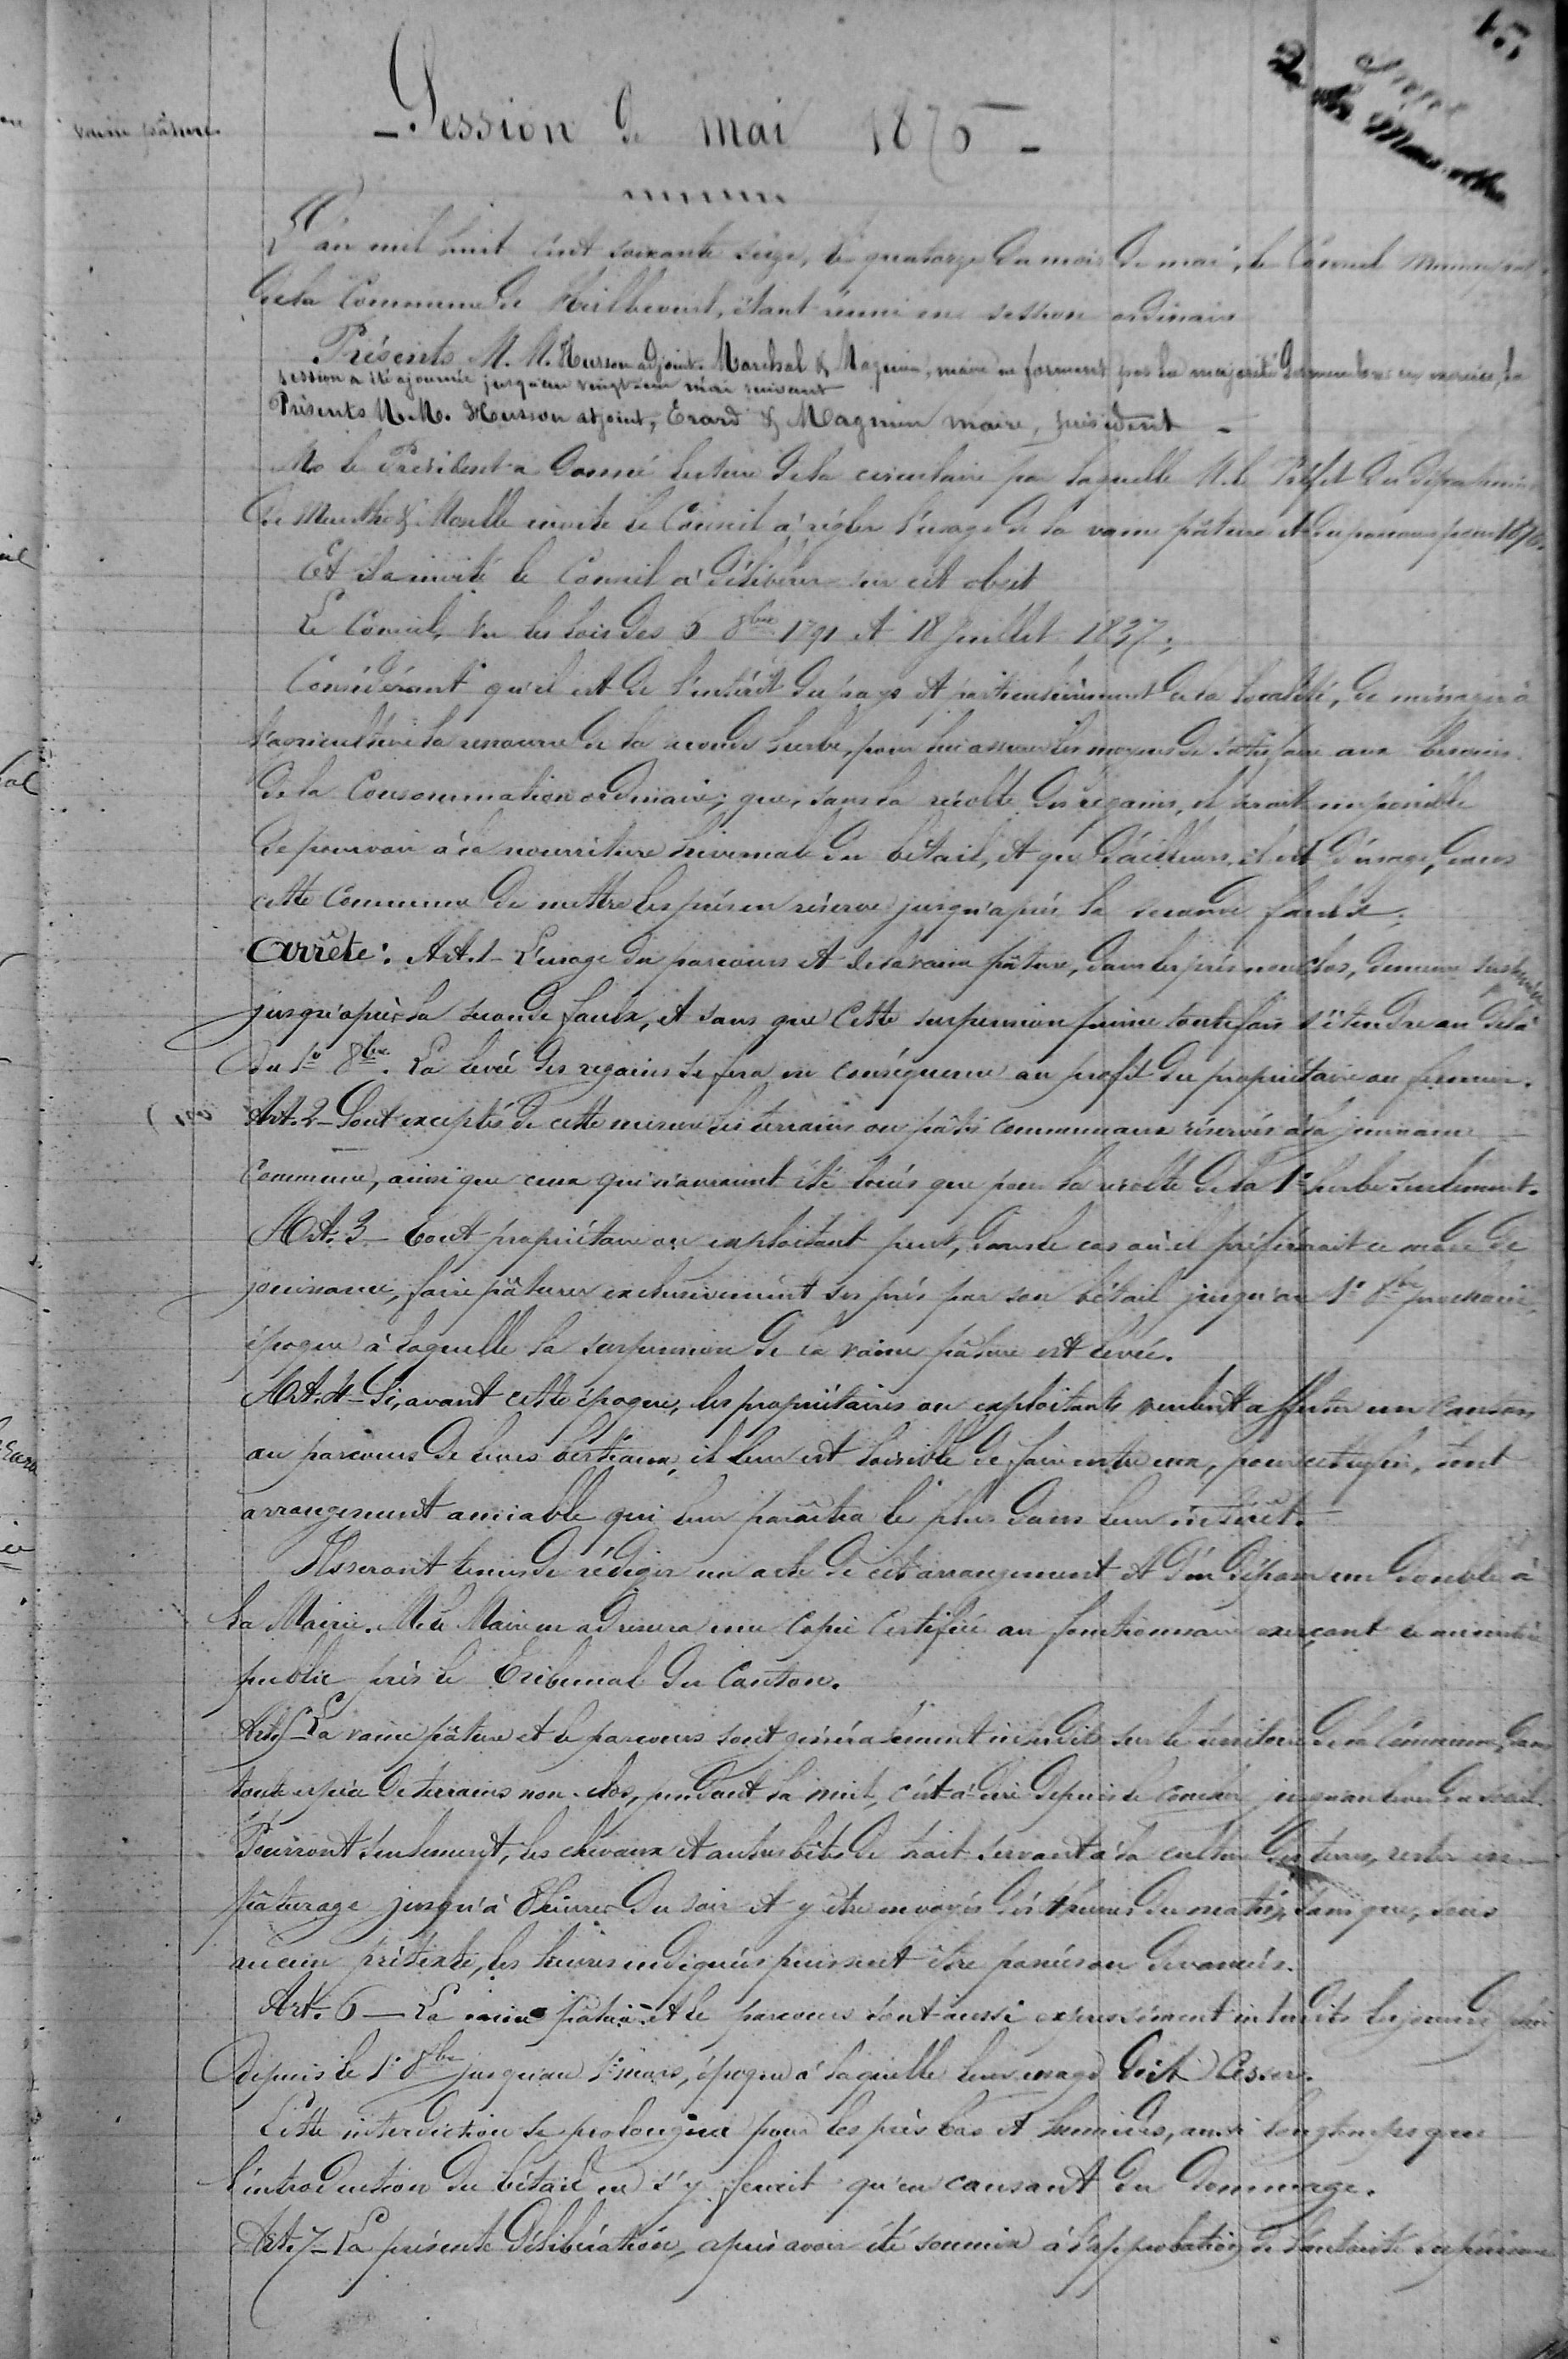 15
vaine pâture.
- Session de mai 1876 -
L'an mil huit cent soixante seize, le quatorze du mois de mai, le Conseil Municipal
de la Commune de Heillbevent, étant réuni en session ordinaire
Présents M. M. Husson adjoint. Marchal & Magnien, maire ne formant pas la majorité des membres en exercice, la
session a été ajournée jusqu'au vingt-un mai suivant
Présents M. M. Husson adjoint, Erard & Magnien maire, président -
M. le Président a donné lecture de la circulaire par laquelle M. le Préfet du département
de Meurthe & Moselle invite le Conseil à régler l'usage de la vaine pâture et du parcours pour 1876.
Et il a invité le Conseil à délibérer sur cet objet
Le Conseil, Vu les lois des 6 8bre 1791 et 18 Juillet 1837;
Considérant qu'il est de l'intérêt du pays et particulièrement de la localité, de ménager à
l'agriculture la ressource de la seconde herbe, pour lui assurer les moyens de satisfaire aux besoins
de la Consommation ordinaire; que, sans la récolte des regains, il serait impossible
de pourvoir à la nourriture hivernale du bétail, et que d'ailleurs, il est d'usage, dans
cette Commune de mettre les prés en réserve jusqu'après la seconde faulx;
Arrête: Art. 1 - L'usage du parcours et de la vaine pâture, dans les prés non clos, demeure suspendu
jusqu'après la seconde faulx, et sans que cette suspension puisse toutefois s'étendre au delà
du 1er 8bre. La levée des regains se fera en conséquence au profit du propriétaire ou fermier.
Art. 2 - Sont exceptés de cette mesure les terrains ou pâtis communaux réservés à la jouissance
Commune, ainsi que ceux qui n'auraient été loués que pour la récolte de la 1re herbe seulement.
Art. 3 - Tout propriétaire ou exploitant peut, dans le cas où il préférerait ce mode de
jouissance, faire pâturer exclusivement ses prés par son bétail jusqu'au 1er 8bre prochain,
époque à laquelle la suspension de la vaine pâture est levée.
Art. 4 - Si, avant cette époque, les propriétaires ou exploitants veulent affecter un canton
au parcours de leurs bestiaux, il leur est loisible de faire entre eux, pour cette fin, tout
arrangement amiable qui leur paraîtra le plus dans leur intérêt.
Ils seront tenus de rédiger un acte de cet arrangement et d'en déposer un double à
la Mairie. M. le Maire en adressera une Copie Certifiée au fonctionnaire exerçant le ministère
public près le Tribunal du Canton.
Art. 5 - La vaine pâture et le parcours sont généralement interdits sur le territoire de la Commune, dans
toute espèce de terrains non-clos, pendant la nuit, c'est-à-dire depuis le coucher jusqu'au lever du soleil.
Pourront seulement, les chevaux et autres bêtes de trait servant à la culture des terres, rester en
pâturage jusqu'à 8 heures du soir et y être envoyés dès heures du matin, sans que, sous
aucun prétexte, les heures indiquées puissent être passées ou devancées.
Art. 6 - La vaine pâture et le parcours sont aussi expressément interdits les jours de
depuis le 1er 8bre jusqu'au 1er mars, époque à laquelle leur usage doit cesser.
Cette interdiction se prolongera pour les prés bas et humides, aussi longtemps que
l'introduction du bétail ne s'y ferait qu'en causant du dommage.
Art. 7 - La présente Délibération, après avoir été soumise à l'approbation de l'autorité supérieure